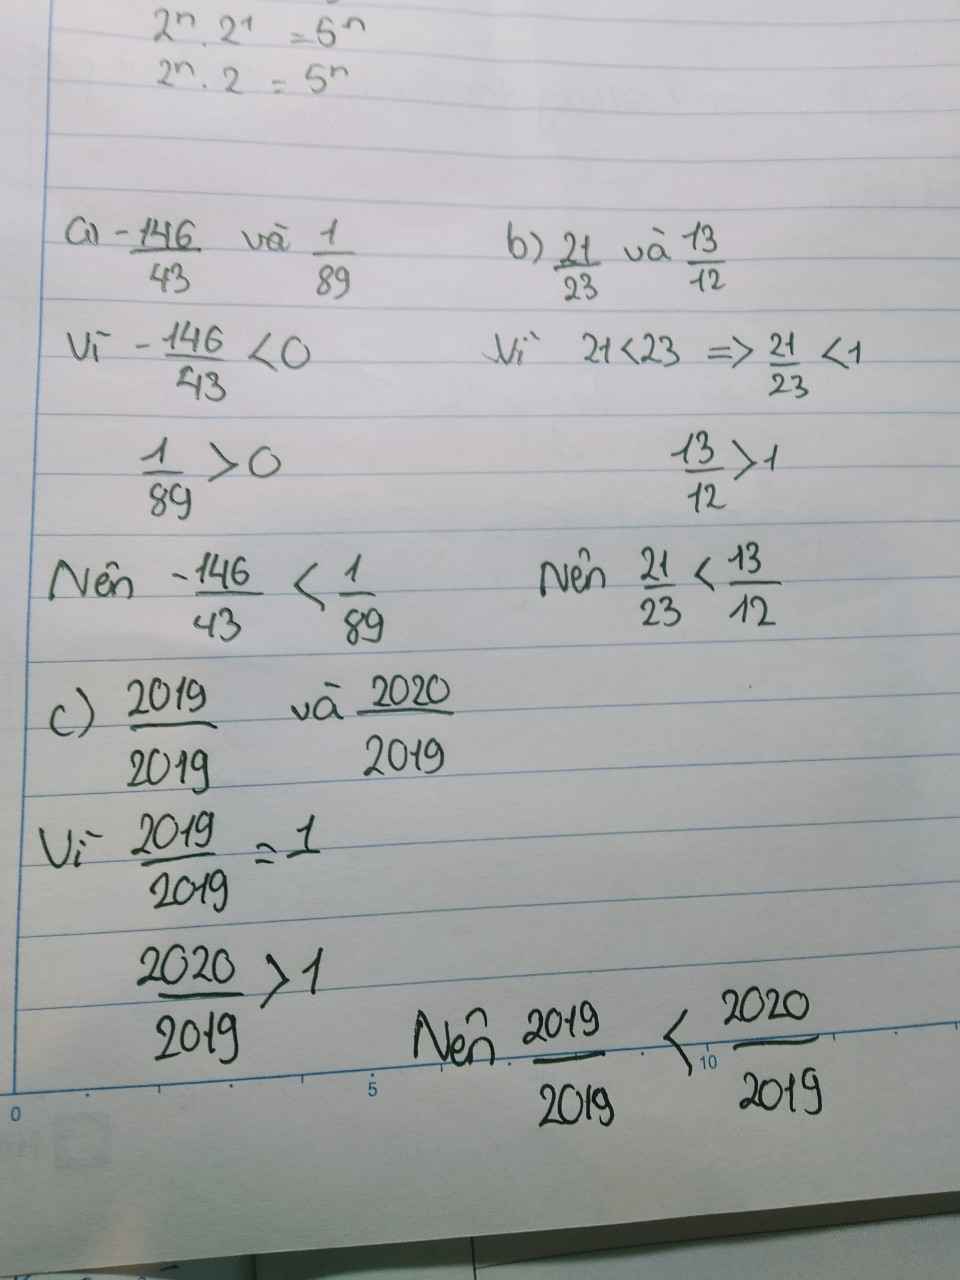 2ⁿ . 2¹ = 5ⁿ
2ⁿ . 2 = 5ⁿ
a) -146/43 và 1/89
Vì -146/43 < 0
1/89 > 0
Nên -146/43 < 1/89
b) 21/23 và 13/12
Vì 21 < 23 => 21/23 < 1
13/12 > 1
Nên 21/23 < 13/12
c) 2019/2019 và 2020/2019
Vì 2019/2019 = 1
2020/2019 > 1
Nên 2019/2019 < 2020/2019
0 5 10